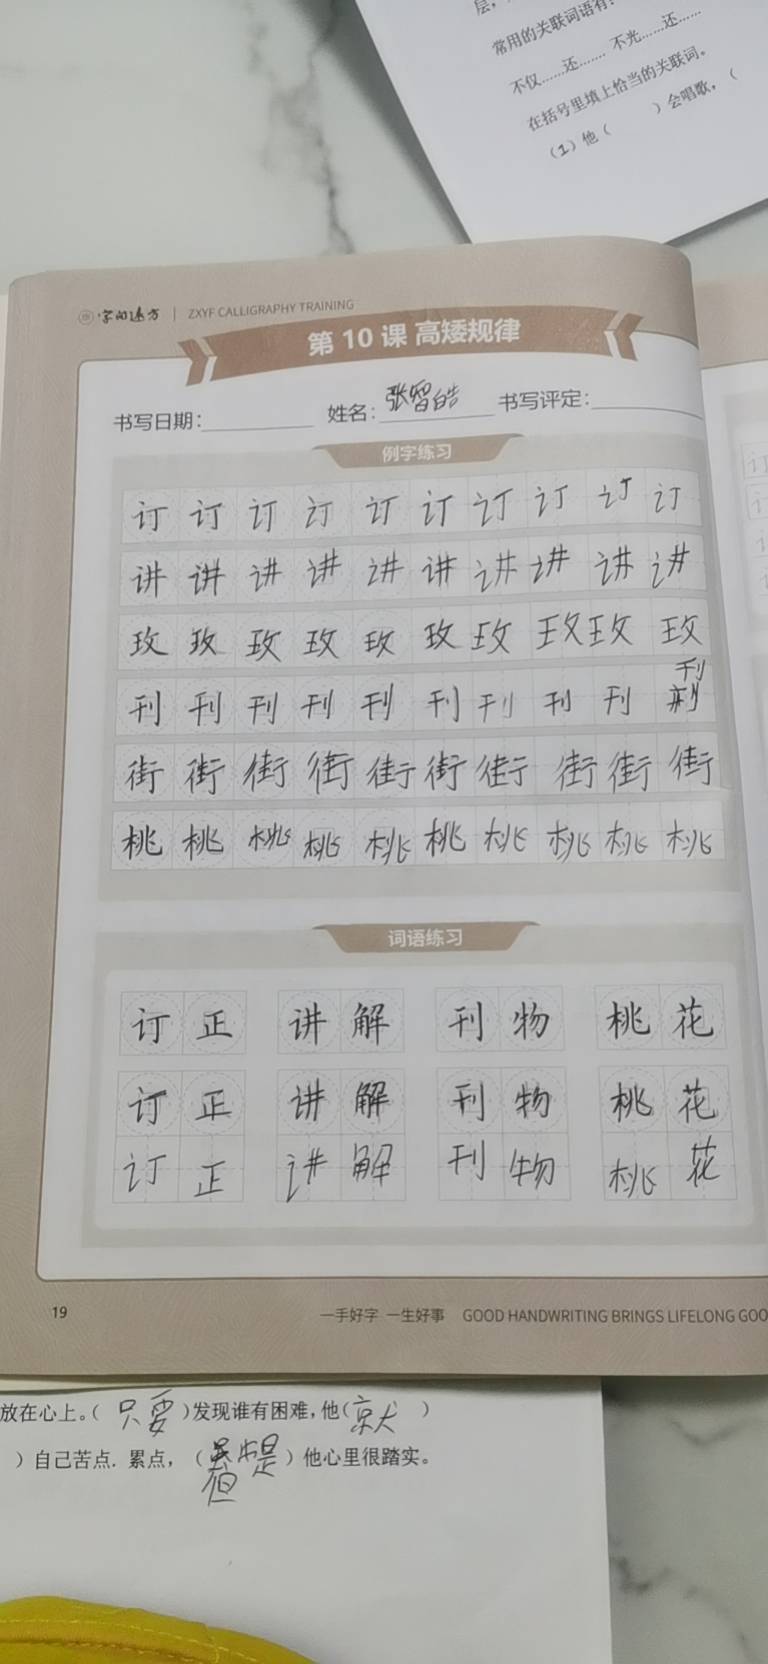 层，
常用的关联词语有：
不仅……还…… 不光……还……
在括号里填上恰当的关联词。
（1）他（ ）会唱歌，（
字向远方 | ZXYF CALLIGRAPHY TRAINING
第 10 课 高矮规律
书写日期： 姓名：张智皓 书写评定：
例字练习
订 订 订 订 订 订 订 订 订 订
讲 讲 讲 讲 讲 讲 讲 讲 讲 讲
玫 玫 玫 玫 玫 玫 玫 玫 玫 玫
刊 刊 刊 刊 刊 刊 刊 刊 刊 刊
街 街 街 街 街 街 街 街 街 街
桃 桃 桃 桃 桃 桃 桃 桃 桃 桃
词语练习
订正 讲解 刊物 桃花
订正 讲解 刊物 桃花
订正 讲解 刊物 桃花
19
一手好字 一生好事 GOOD HANDWRITING BRINGS LIFELONG GOO
放在心上。（只要）发现谁有困难，他（就）
）自己苦点. 累点，（但是）他心里很踏实。